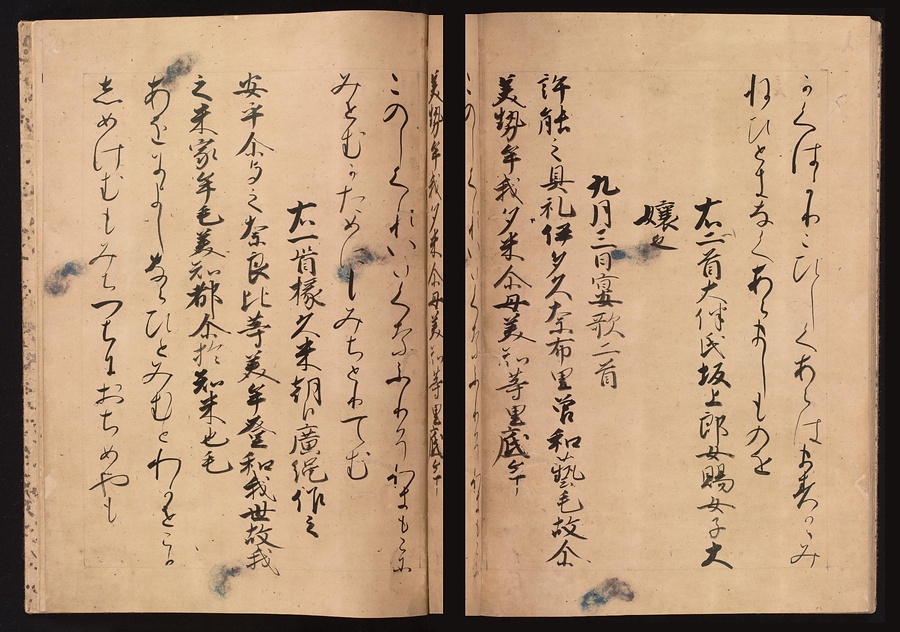 かくはかりこひしくあらはま其かゝみ
ぬひときなくあらましものを
右二首大伴氏坂上郎女賜女子大
嬢也
九月三日宴歌二首
許能之具礼伊多久奈布里曽和藝毛故尓
美勢牟我多米尓母美知等里底牟
このしくれいたくなふりそわきもこに
みせむかためにもみちとりてむ
右一首掾久米朝臣廣縄作之
安乎尓与之奈良比等美牟登和我世故我
之米家牟毛美知都尓於知米也毛
あをによしならひとみむとわかせこか
しめけむもみちつちにおちめやも